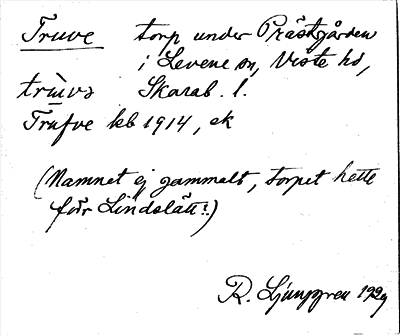 Truve torp under Prästgården
i Levene sn, Viste hd,
trùvə Skarab. l.
Trufve kb 1914, ek
(Namnet ej gammalt, torpet hette
förr Lindslätt!)
R. Ljunggren 1929